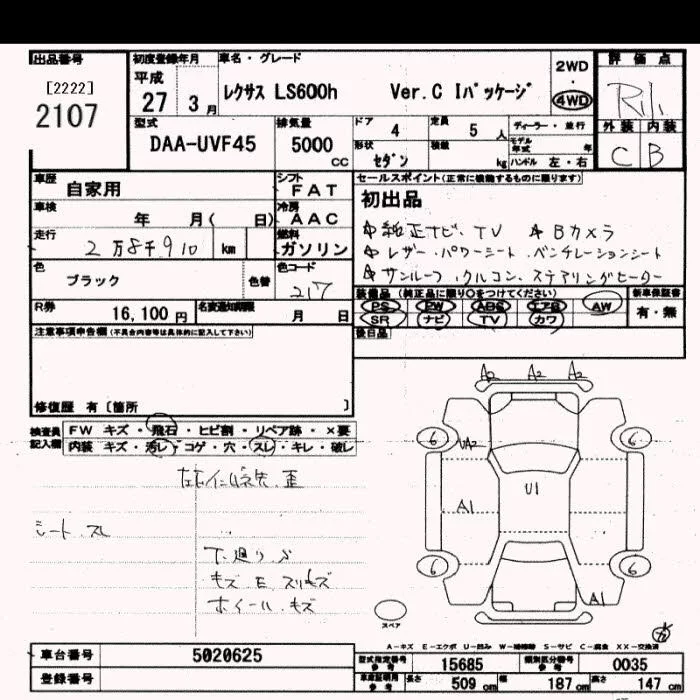 出品番号
[2222]
2107
初度登録年月
平成
27 3 月
車名・グレード
レクサス LS600h Ver.C Iパッケージ
2WD
・
4WD
評価点
外装 内装
C B
型式
DAA-UVF45
排気量
5000
CC
ドア 4
定員 5 人
ディーラー・並行
モデル年式 年
形状 セダン
積載 kg
ハンドル 左・右
車歴 自家用
シフト FAT
車検 年 月( 日)
冷房 AAC
走行 2万8千910 km
燃料 ガソリン
色 ブラック 色替
色コード 217
R券 16,100 円
名変通知期限 月 日
セールスポイント(正常に機能するものに限ります)
初出品
純正ナビ、TV Bカメラ
レザー・パワーシート・ベンチレーションシート
サンルーフ・クルコン、ステアリングヒーター
装備品(純正品に限り○をつけてください) 新車保証書
PS PW ABS エアB AW 有・無
SR ナビ TV カワ
後日品
注意事項申告欄(不具合内容等は具体的に記入して下さい)
修復歴 有〔箇所 〕
検査員記入欄
FW キズ・飛石・ヒビ割・リペア跡・×要
内装 キズ・汚レ・コゲ・穴・スレ・キレ・破レ
シートスレ
下廻りサ
キズ E スリキズ
ホイールキズ
A2 A2 A2
6 6
UA2
U1
A1
6 6
A1
スペア
A-キズ E-エクボ U-凹み W-補修跡 S-サビ C-腐食 XX-交換済
車台番号 5020625
登録番号
型式指定番号 参考 15685
類別区分番号 参考 0035
車庫証明用 参考 長さ 509 cm 幅 187 cm 高さ 147 cm